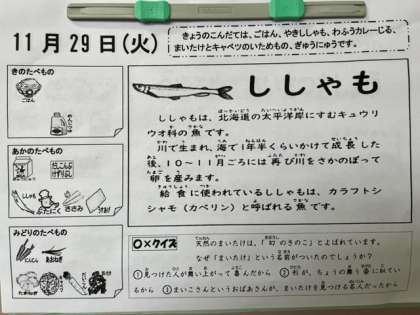 11月29日(火)
きょうのこんだては、ごはん、やきししゃも、わふうカレーじる、
まいたけとキャベツのいためもの、ぎゅうにゅうです。
きのたべもの
ごはん
あかのたべもの
だしこんぶ
けずりぶし
ししゃも
ぶたにく
ささみ
みどりのたべもの
にんじん
あおねぎ
たまねぎ
ししゃも
ししゃもは、北海道の太平洋岸にすむキュウリ
ウオ科の魚です。
川で生まれ、海で1年半くらいかけて成長した
後、10〜11月ごろには再び川をさかのぼって
卵を産みます。
給食に使われているししゃもは、カラフトシ
シャモ(カペリン)と呼ばれる魚です。
〇×クイズ
天然のまいたけは、「幻のきのこ」とよばれています。
なぜ「まいたけ」という名前がついたのでしょうか?
①見つけた人が舞い上がって喜んだから ②形が、ちょうの舞う姿に似てい
るから ③まいこさんというおばあさんが、まいたけを見つける名人だったから